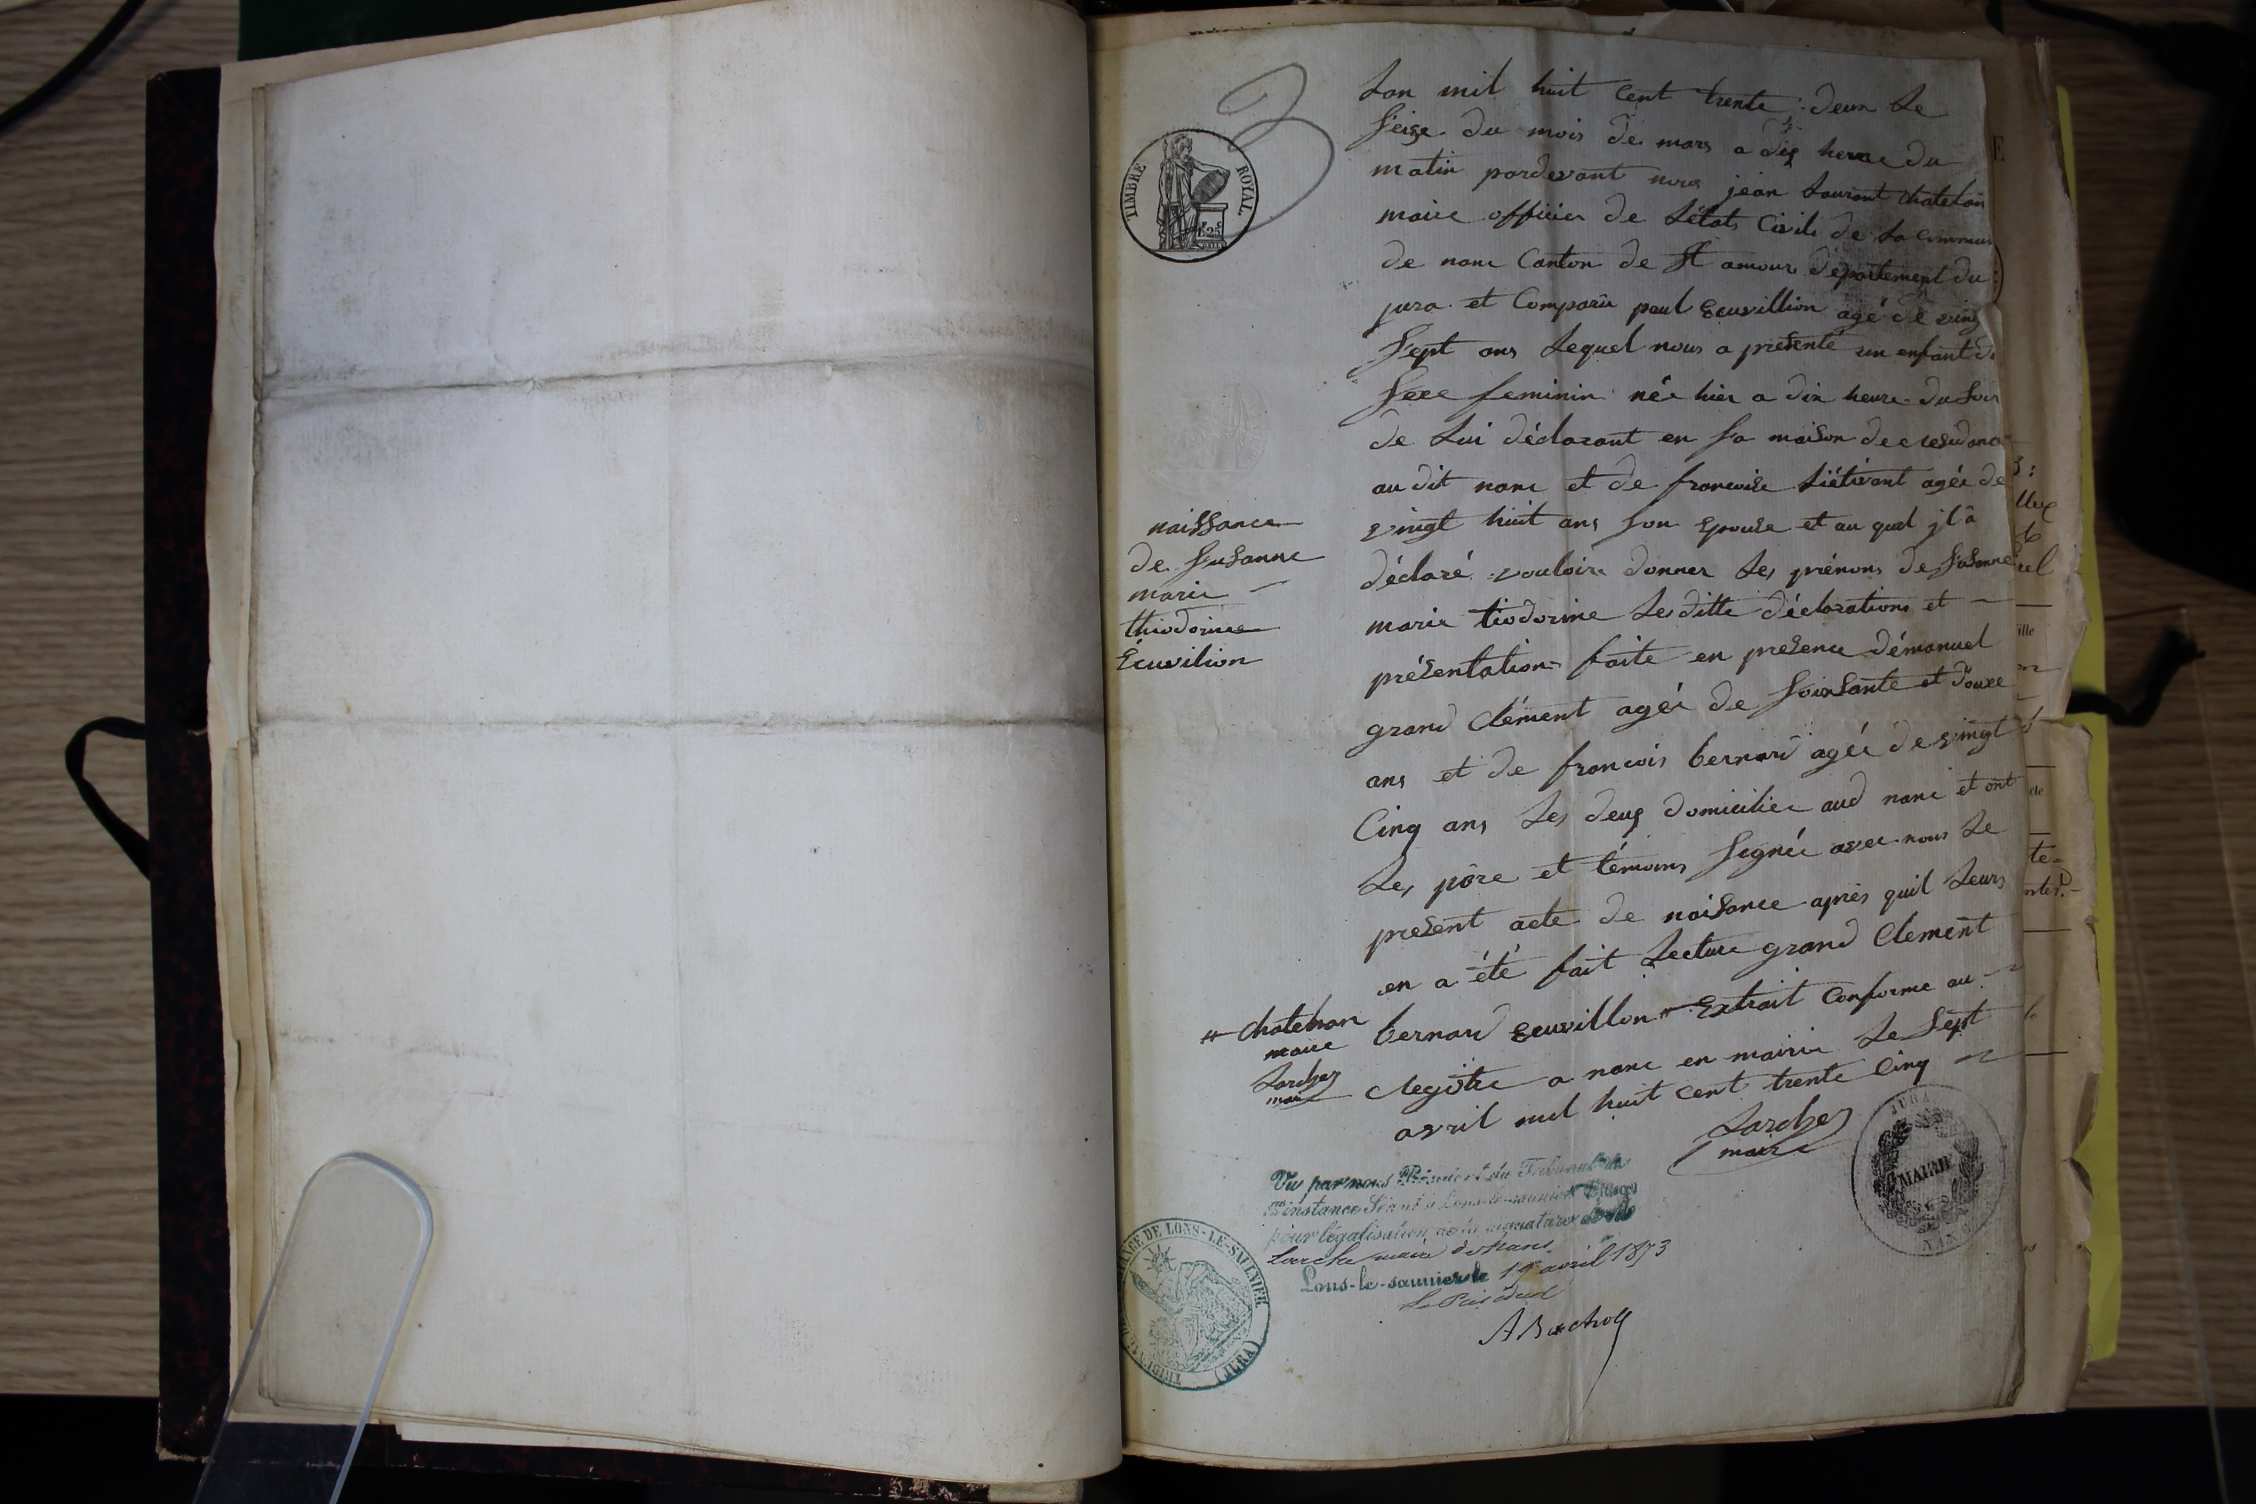 TIMBRE ROYAL
25
Lan mil huit Cent trente : deux Le
Seize du mois de mars a dix heure du
matin pardevant nous jean Laurant Chatelan
maire officier de Létat Civil de La Commun
de nanc Canton de St amour département du
jura et Comparu paul Ecuvillion agé de ving
Sept ans Lequel nous a présenté un enfant de
Sexe feminin née hier a dix heure du Soir
de Lui déclarant en Sa maison de residance
au dit nanc et de francoise agée de
vingt huit ans Son Epouse et au quel jl a
déclaré vouloir donner Les prénoms de Susanne
marie tiodorine Les ditte déclarations et
présentation faite en presence démanuel
grand Clément agée de Soixsante et douxe
ans et de francois bernard agée de vingt
Cinq ans Les deux domiciliée aud nanc et ont
Les père et témoins Signée avec nous Le
present acte de naisance après quil Leurs
en a été fait Lecture grand Clement
bernard Ecuvillon # Extrait Conforme au
Regitre a nanc en mairie Le Sept
avril mil huit cent trente Cinq
Larcher
maire
naissance
de Susanne
marie
thiodorine
Ecuvilion
# Chatelan
maire
Larcher
maire
JURA
MAIRIE
NANC
Vu par nous Président du Tribunal de
instance Séant à Lons-le-saunier
pour légalisation de la signature de Mr
Larcher maire de Nanc
Lons-le-saunier le 19 avril 1873
Le Président
TRIBUNAL DE INSTANCE DE LONS-LE-SAULNIER (JURA)